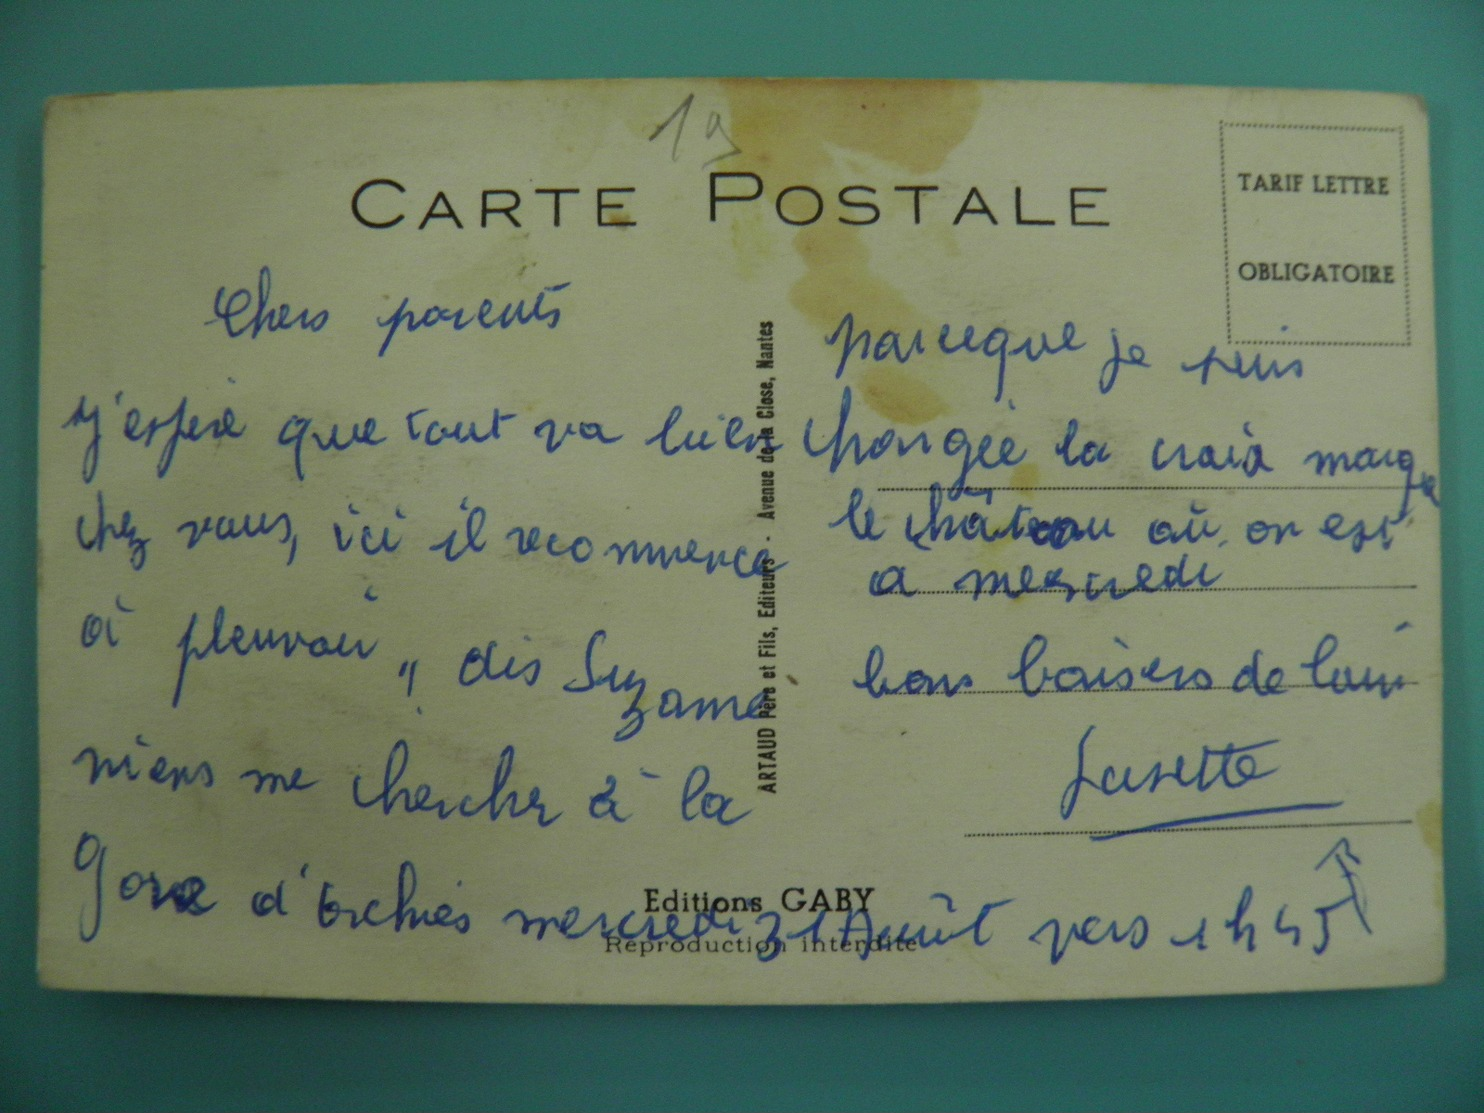 19
CARTE POSTALE
TARIF LETTRE
OBLIGATOIRE
Chers parents
j'espère que tout va bien
chez vous, ici il recommence
à pleuvoir, dis Suzanne
viens me chercher à la
Gare d'Orchies mercredi 31 Août vers 1 h 45
parceque je suis
chargée la croix marque
le château où on est
a mercredi
bons baisers de loin
ARTAUD Père et Fils, Editeurs - Avenue de la Close, Nantes
Editions GABY
Reproduction interdite